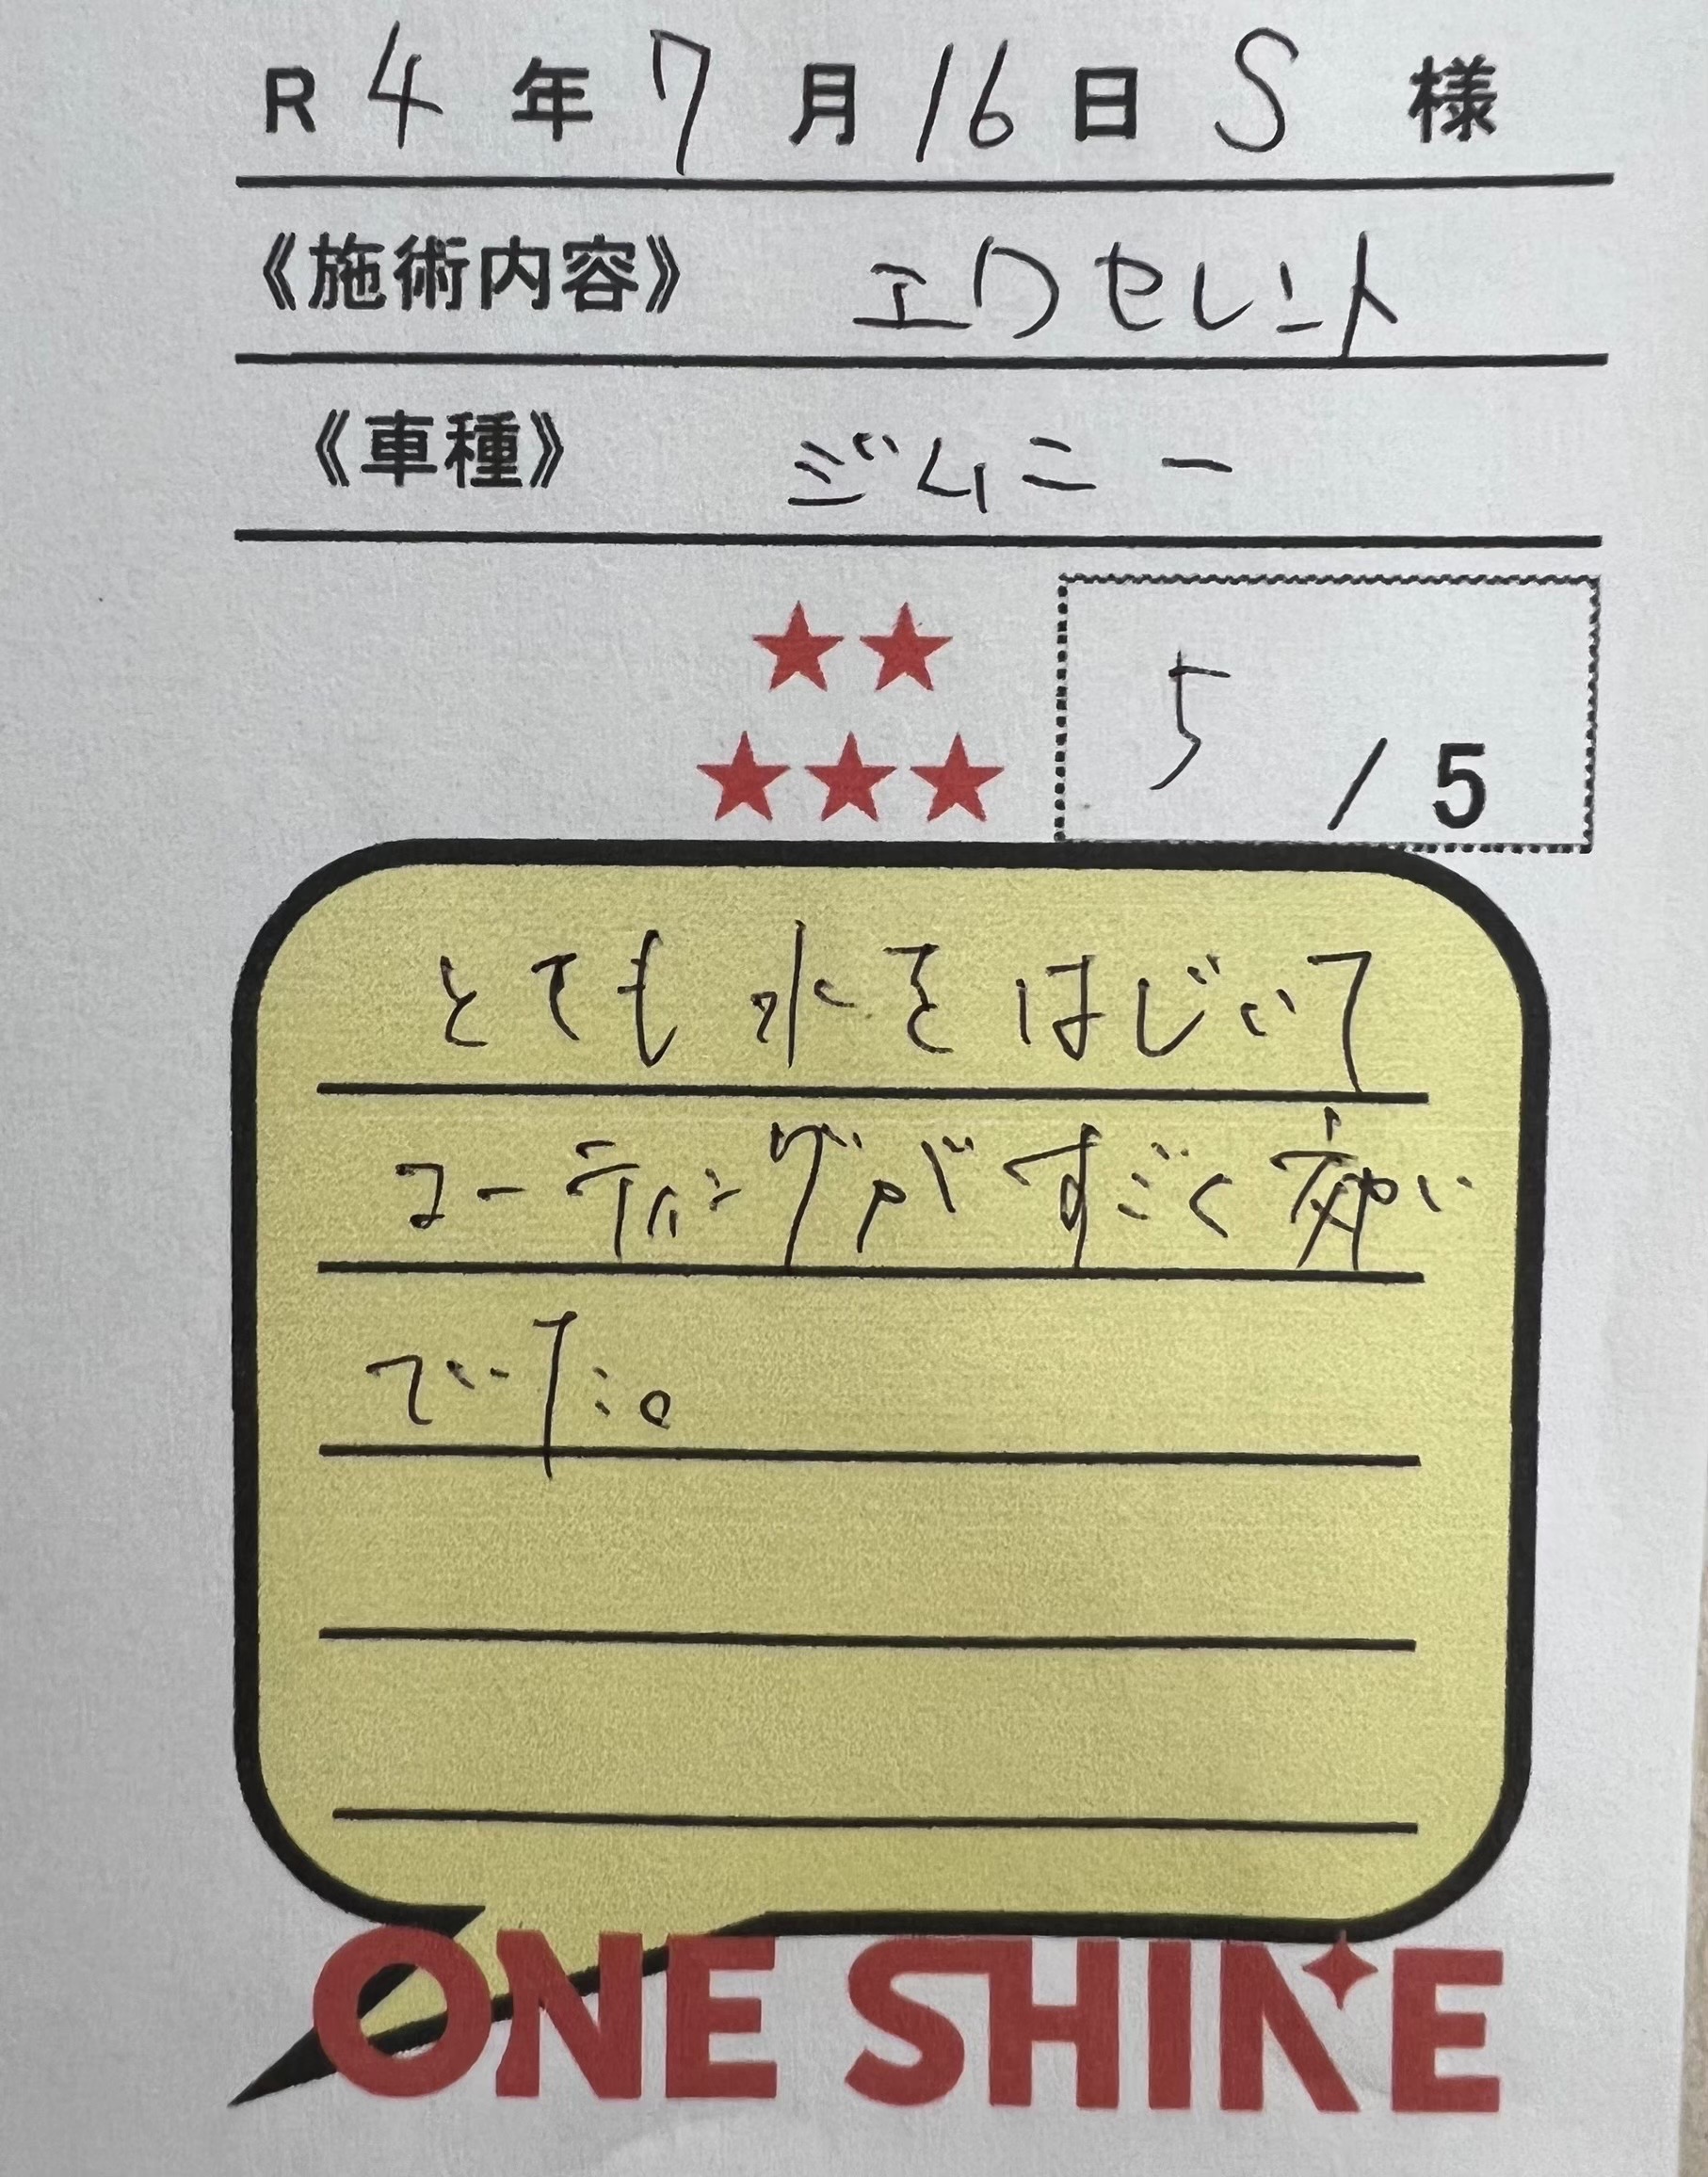 R 4 年 7 月 16 日 S 様
《施術内容》 エクセレント
《車種》 ジムニー
5 / 5
とても水をはじいて
コーティングがすごく効い
ていた。
ONE SHINE